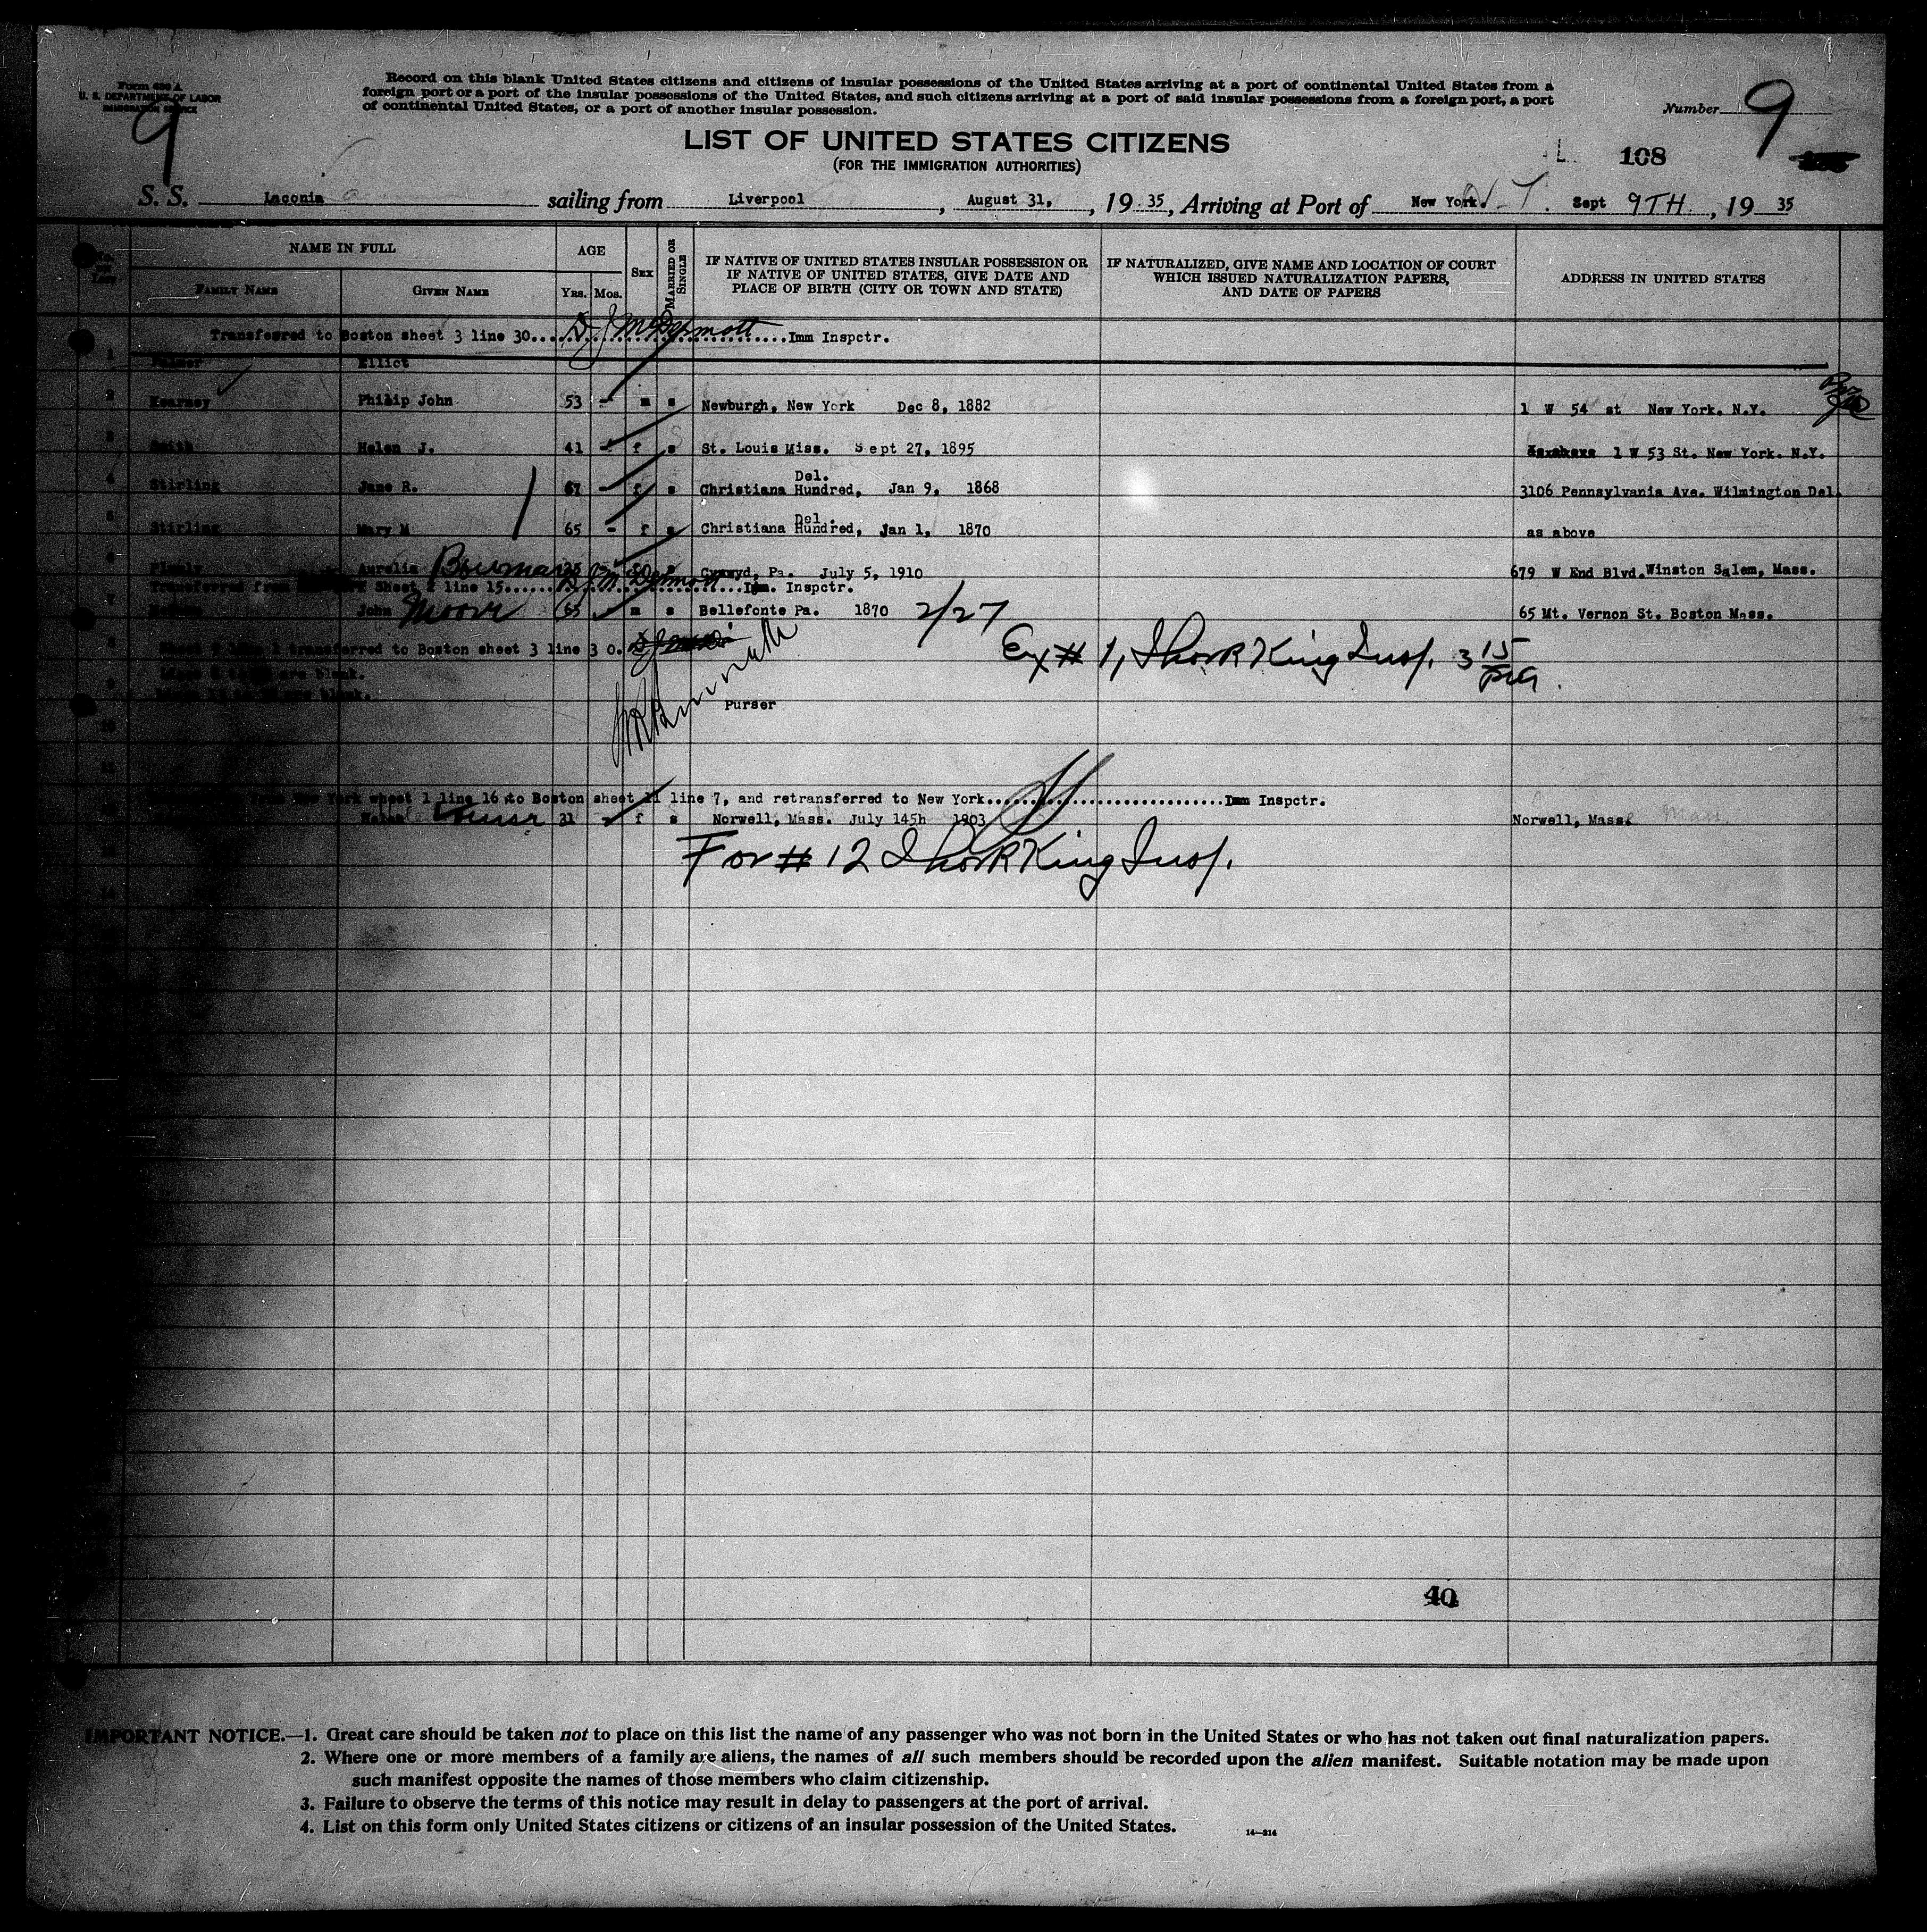 Form 630 A
U. S. DEPARTMENT OF LABOR
IMMIGRATION SERVICE
9
Record on this blank United States citizens and citizens of insular possessions of the United States arriving at a port of continental United States from a
foreign port or a port of the insular possessions of the United States, and such citizens arriving at a port of said insular possessions from a foreign port, a port
of continental United States, or a port of another insular possession.
Number 9
LIST OF UNITED STATES CITIZENS
(FOR THE IMMIGRATION AUTHORITIES)
L. 108
S. S. Laconia sailing from Liverpool, August 31, , 19 35, Arriving at Port of New York. N-Y. Sept 9TH, 19 35
No. on List
NAME IN FULL
FAMILY NAME GIVEN NAME
AGE
Yrs. Mos.
SEX
MARRIED OR SINGLE
IF NATIVE OF UNITED STATES INSULAR POSSESSION OR
IF NATIVE OF UNITED STATES, GIVE DATE AND
PLACE OF BIRTH (CITY OR TOWN AND STATE)
IF NATURALIZED, GIVE NAME AND LOCATION OF COURT
WHICH ISSUED NATURALIZATION PAPERS,
AND DATE OF PAPERS
ADDRESS IN UNITED STATES
Transferred to Boston sheet 3 line 30.... D J McDermott ....Imm Inspctr.
1 Elliot
2 Kearney Philip John 53 - m s Newburgh, New York Dec 8, 1882 1 W 54 st New York. N.Y.
3 Smith Helen J. 41 - f s St. Louis Miss. Sept 27, 1895 1 W 53 St. New York. N.Y.
4 Stirling Jane R. 67 - f s Christiana Hundred, Del. Jan 9, 1868 3106 Pennsylvania Ave. Wilmington Del.
5 Stirling Mary M 65 - f s Christiana Hundred, Del. Jan 1, 1870 as above
6 Plumly Aurelia Bowman 25 - f s Cynwyd, Pa. July 5, 1910 679 W End Blvd. Winston Salem, Mass.
Transferred from Sheet line 15.... D J McDermott ....Imm. Inspctr.
7 John Moore 65 - m s Bellefonte Pa. 1870 2/27 65 Mt. Vernon St. Boston Mass.
8 transferred to Boston sheet 3 line 3 0.
Ex # 1, King Insp. 3 15
9 are blank.
blank.
Purser
10
11
New York sheet 1 line 16 to Boston sheet 11 line 7, and retransferred to New York........Imm Inspctr.
Helen Louise 31 - f s Norwell, Mass. July 145h 1903 Norwell, Mass. Mass.
For # 12 King Insp.
40
IMPORTANT NOTICE.—1. Great care should be taken not to place on this list the name of any passenger who was not born in the United States or who has not taken out final naturalization papers.
2. Where one or more members of a family are aliens, the names of all such members should be recorded upon the alien manifest. Suitable notation may be made upon
such manifest opposite the names of those members who claim citizenship.
3. Failure to observe the terms of this notice may result in delay to passengers at the port of arrival.
4. List on this form only United States citizens or citizens of an insular possession of the United States.
14—214